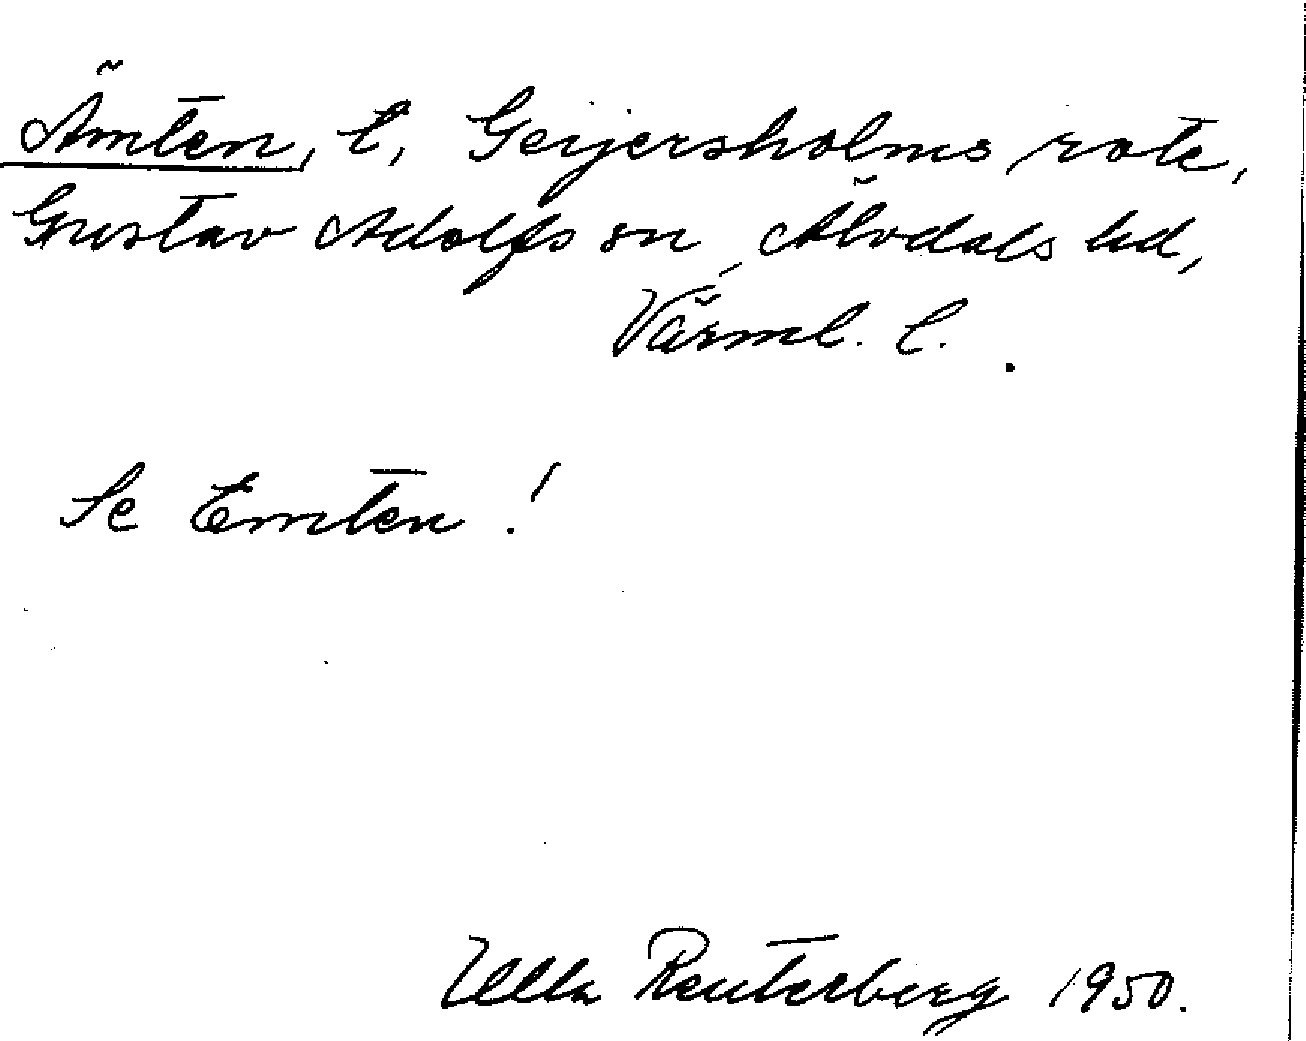 Ämten, l, Geijersholms rote,
Gustav Adolfs sn, Älvdals hd,
Värml. l.
Se Emten!
Ulla Reuterberg 1950.